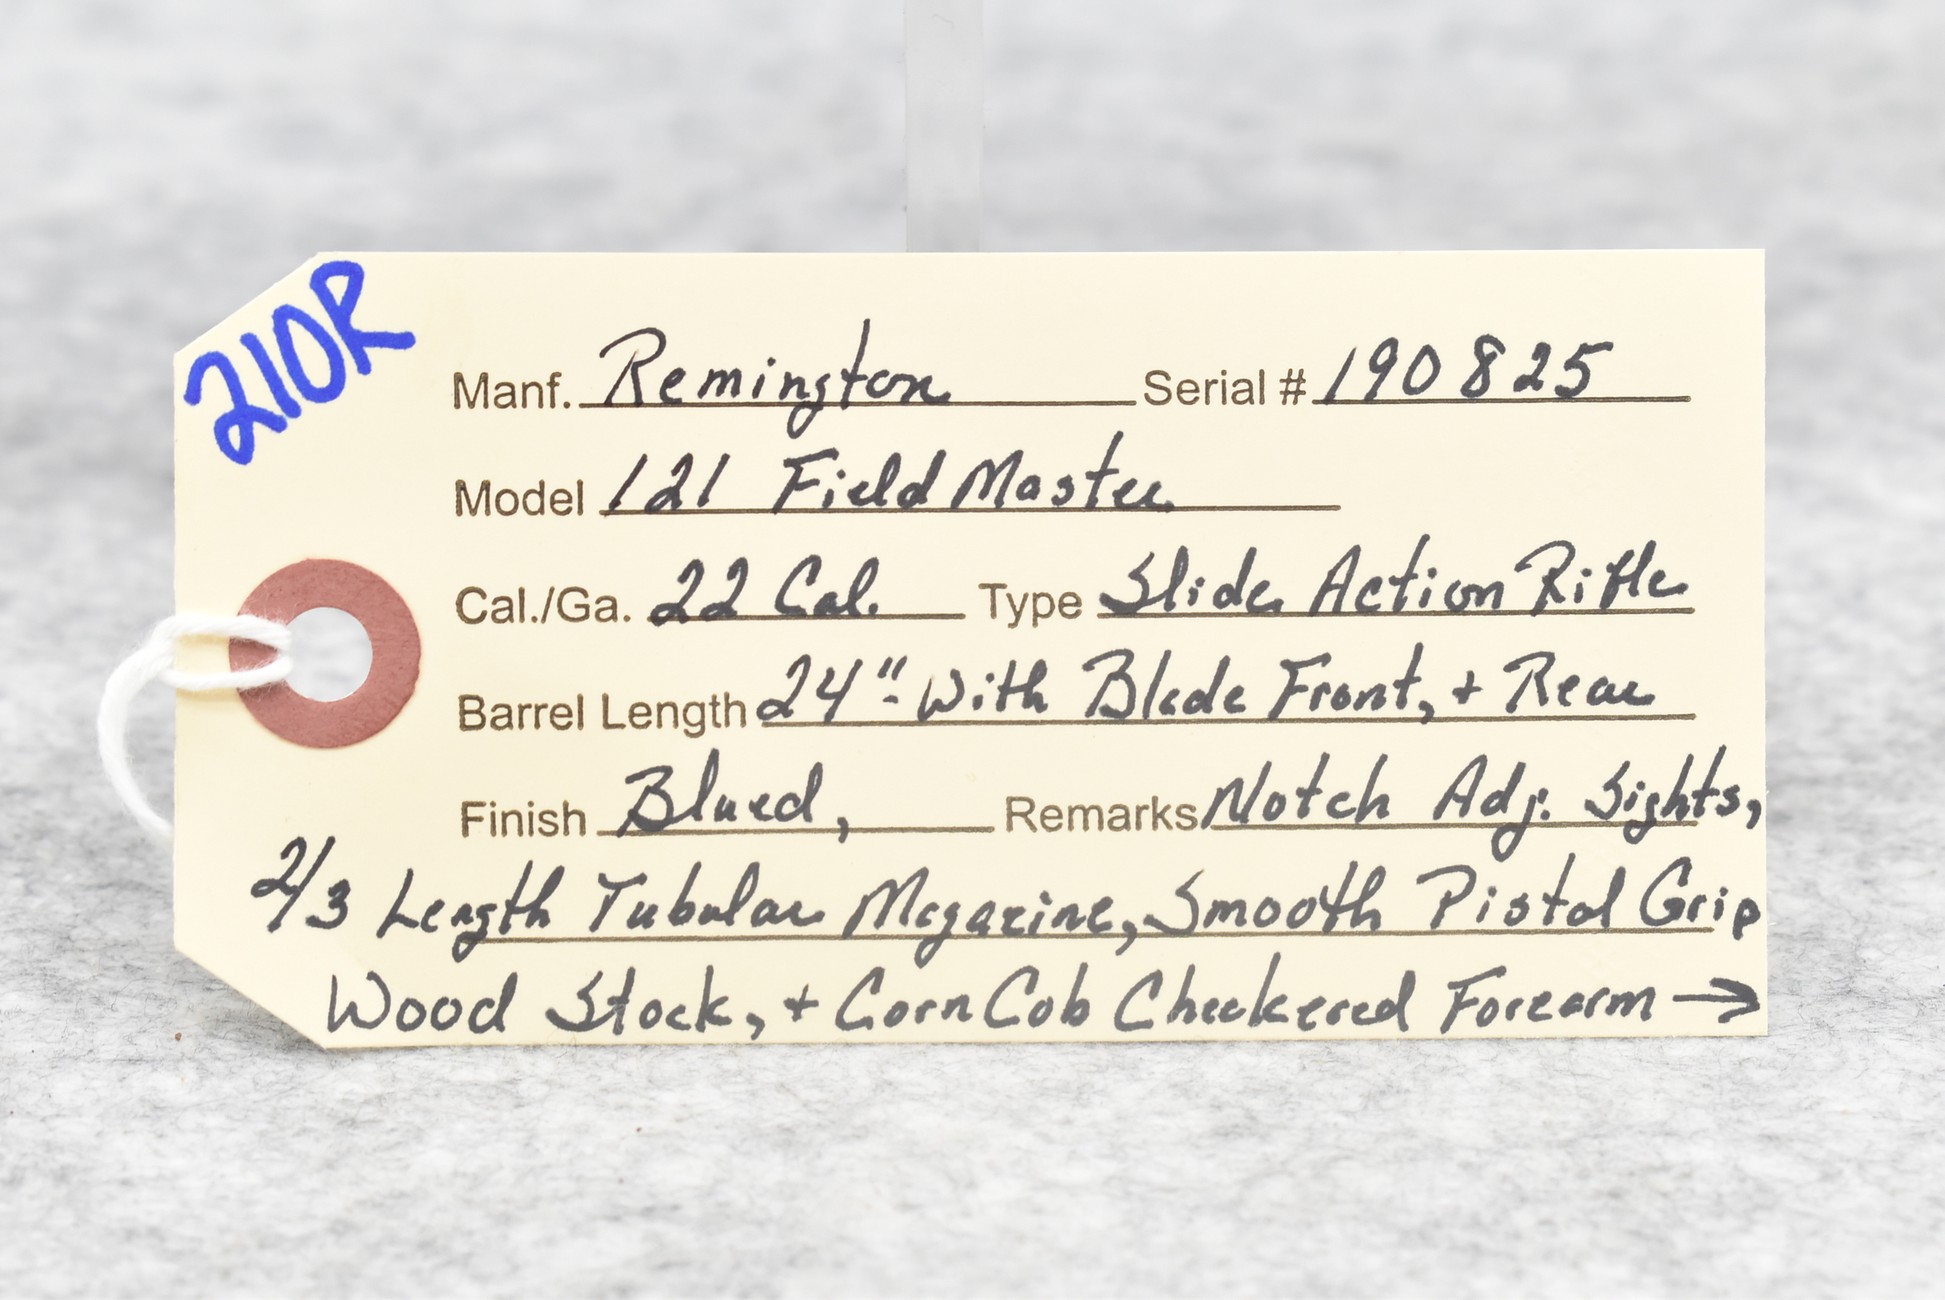 210R
Manf. Remington Serial # 190825
Model 121 Field Master
Cal./Ga. 22 Cal. Type Slide Action Rifle
Barrel Length 24" - With Blade Front, + Rear
Finish Blued, Remarks Notch Adj. Sights,
2/3 Length Tubular Magazine, Smooth Pistol Grip
Wood Stock, + Corn Cob Checkered Forearm →